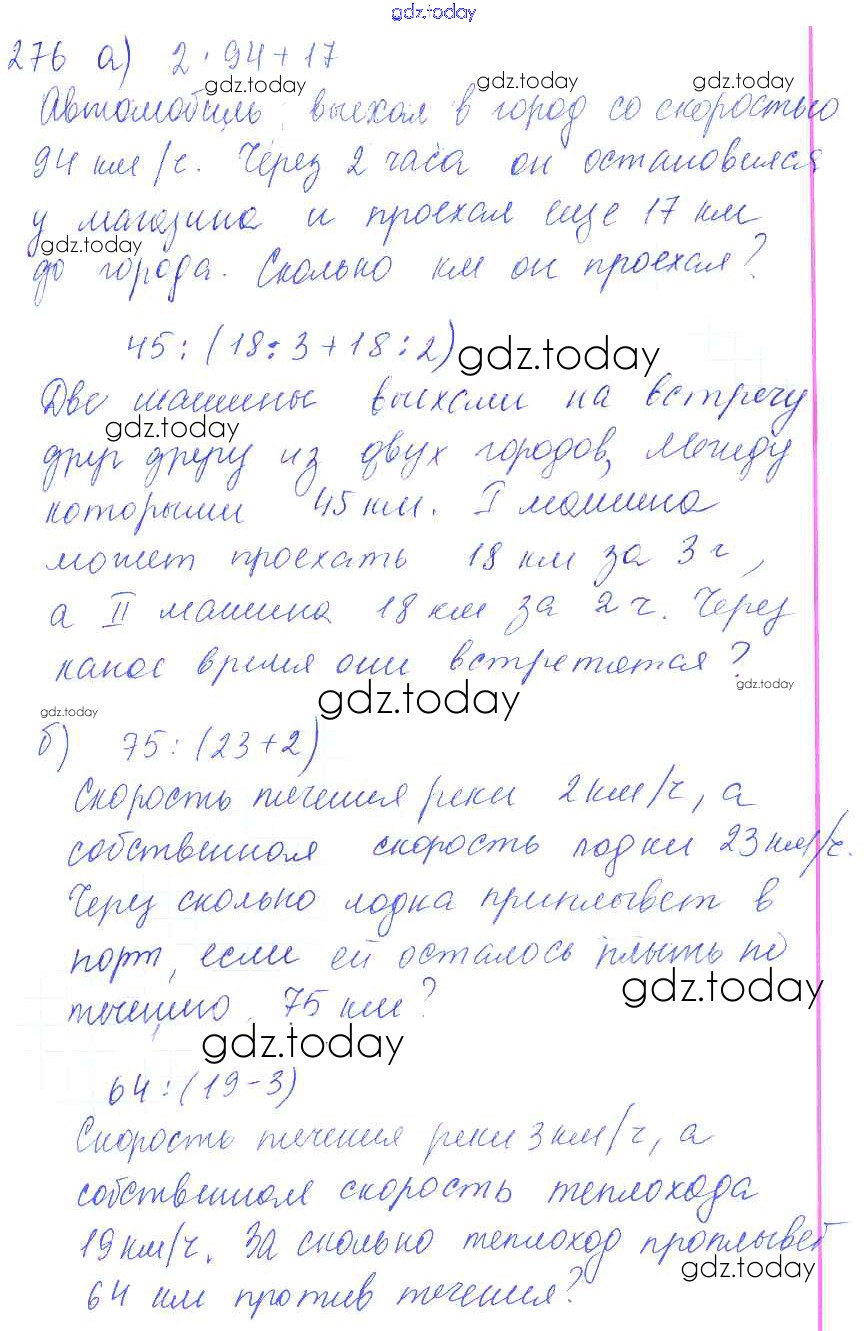 gdz.today
276 а) 2 · 94 + 17
gdz.today gdz.today gdz.today
Автомобиль выехал в город со скоростью
94 км/ч. Через 2 часа он остановился
у магазина и проехал еще 17 км
gdz.today
до города. Сколько км он проехал?
45 : (18 : 3 + 18 : 2)
gdz.today
Две машины выехали на встречу
gdz.today
друг другу из двух городов, между
которыми 45 км. I машина
может проехать 18 км за 3 ч,
а II машина 18 км за 2 ч. Через
какое время они встретятся?
gdz.today
gdz.today
gdz.today
б) 75 : (23 + 2)
Скорость течения реки 2 км/ч, а
собственная скорость лодки 23 км/ч.
Через сколько лодка приплывет в
порт, если ей осталось плыть по
gdz.today
течению 75 км?
gdz.today
64 : (19 - 3)
Скорость течения реки 3 км/ч, а
собственная скорость теплохода
19 км/ч. За сколько теплоход проплывет
gdz.today
64 км против течения?